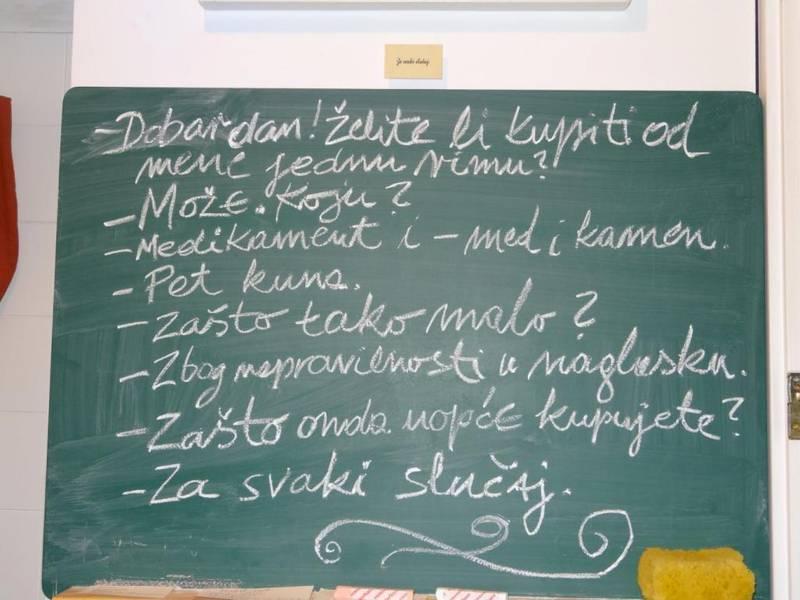 Za svaki slučaj
- Dobar dan! Želite li kupiti od
mene jednu rimu?
- Može. Koju?
- Medikament i - med i kamen.
- Pet kuna.
- Zašto tako malo?
- Zbog nepravilnosti u naglasku.
- Zašto onda uopće kupujete?
- Za svaki slučaj.